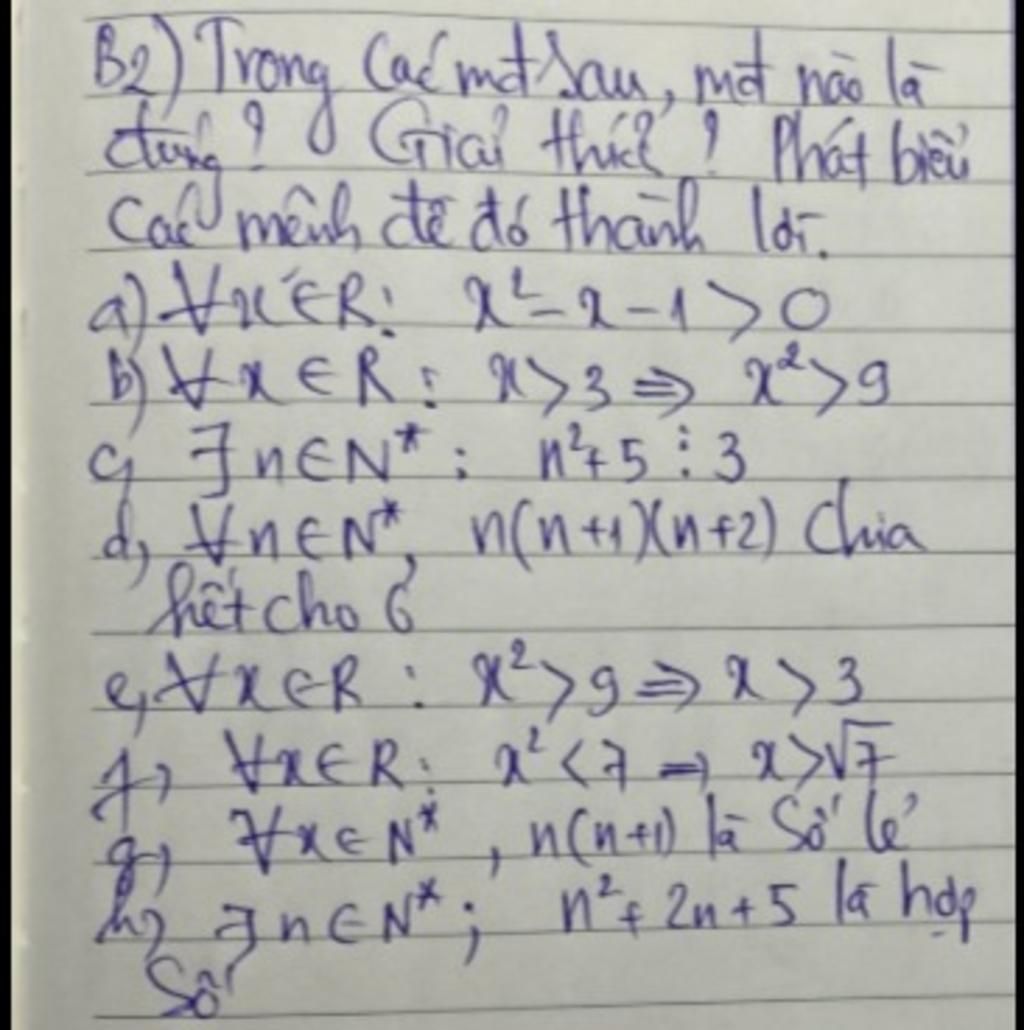 B2) Trong các mđ sau, mđ nào là
đúng? Giải thích? Phát biểu
các mệnh đề đó thành lời.
a) ∀x∈R: x² - x - 1 > 0
b) ∀x ∈ R : x > 3 => x² > 9
c, ∃n∈N* : n² + 5 ⋮ 3
d, ∀n∈N*, n(n+1)(n+2) chia
hết cho 6
e, ∀x∈R : x² > 9 => x > 3
f, ∀x∈R : x² < 7 => x > √7
g, ∀x∈N* , n(n+1) là số lẻ
h, ∃n∈N* ; n² + 2n + 5 là hợp
số